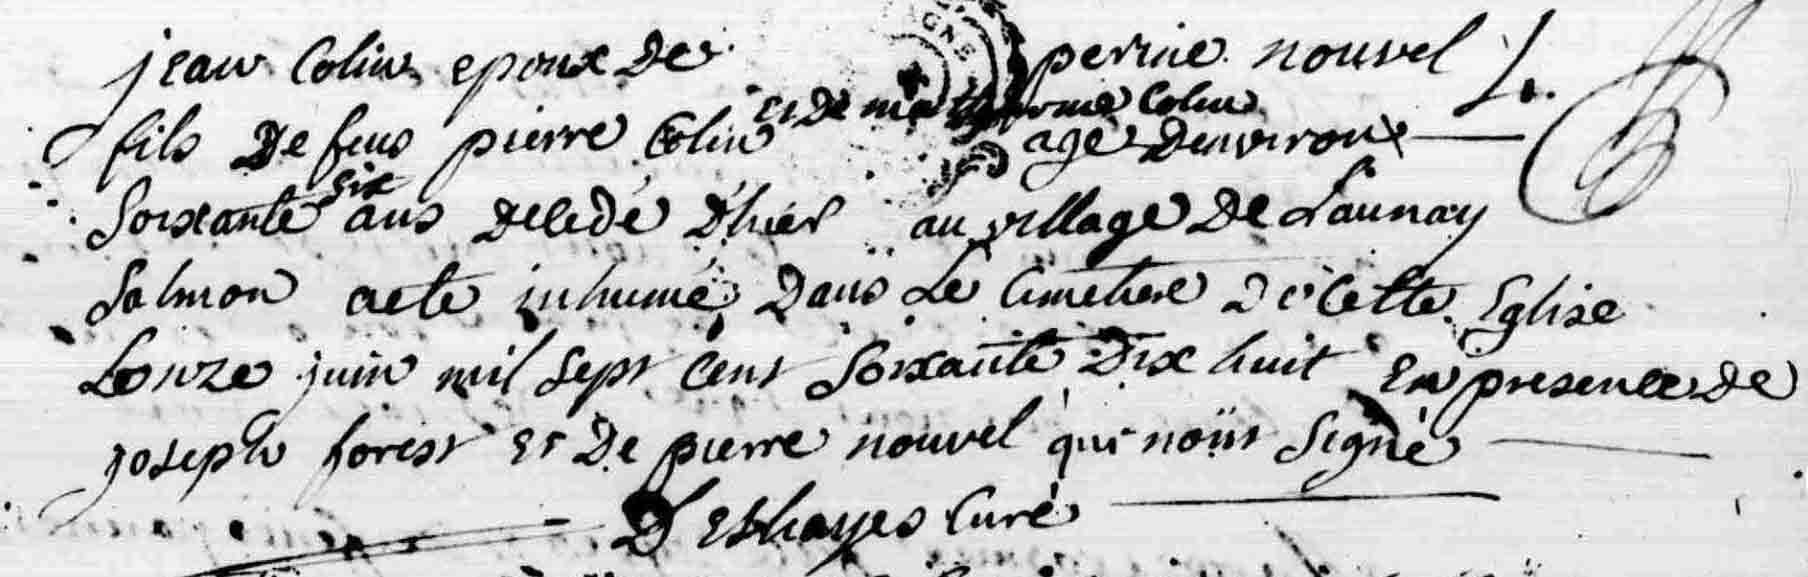 jean Colin epoux De perrine nouvel
Et De Colin
fils De feus pierre Colin agé Denviron
six
Soixante ans decedé D'hier au village De Launay
Salmon aeté inhumé Dans Le Cimetiere De Cette Eglise
Lonze juin mil sept cent Soixante Dix huit En presence De
joseph forest Et De pierre nouvel qui nont Signé
D'Eshayes Curé